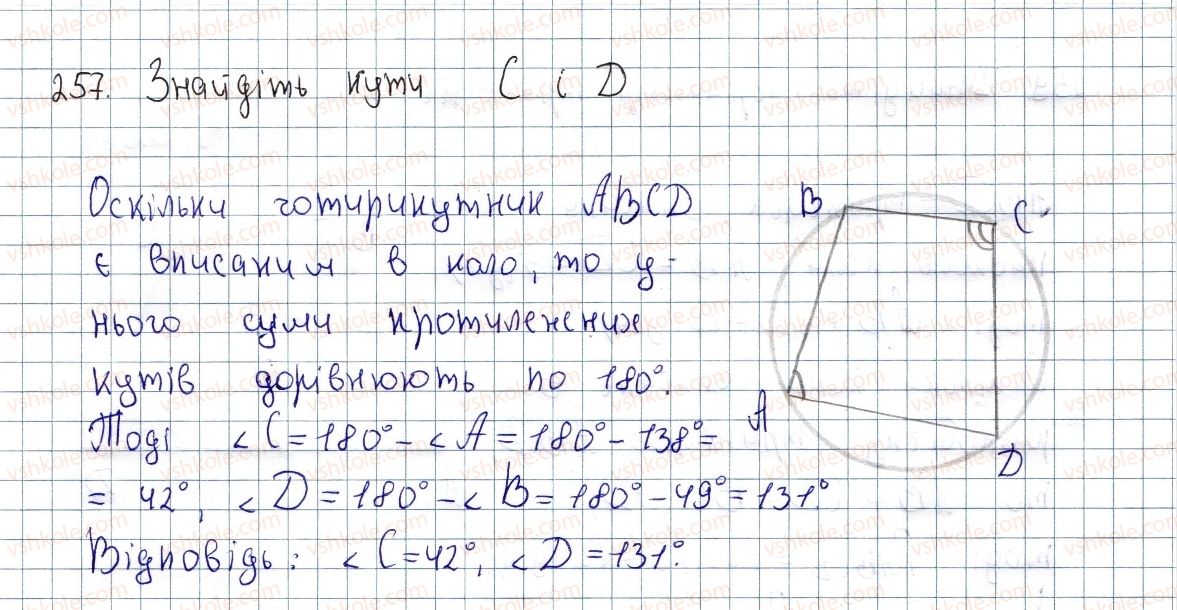 257. Знайдіть кути C і D
Оскільки чотирикутник ABCD
є вписаним в коло, то у
нього суми протилежних
кутів дорівнюють по 180°.
Тоді ∠C = 180° - ∠A = 180° - 138° =
= 42°, ∠D = 180° - ∠B = 180° - 49° = 131°.
Відповідь: ∠C = 42°, ∠D = 131°.
B
C
A
D
vshkole.com